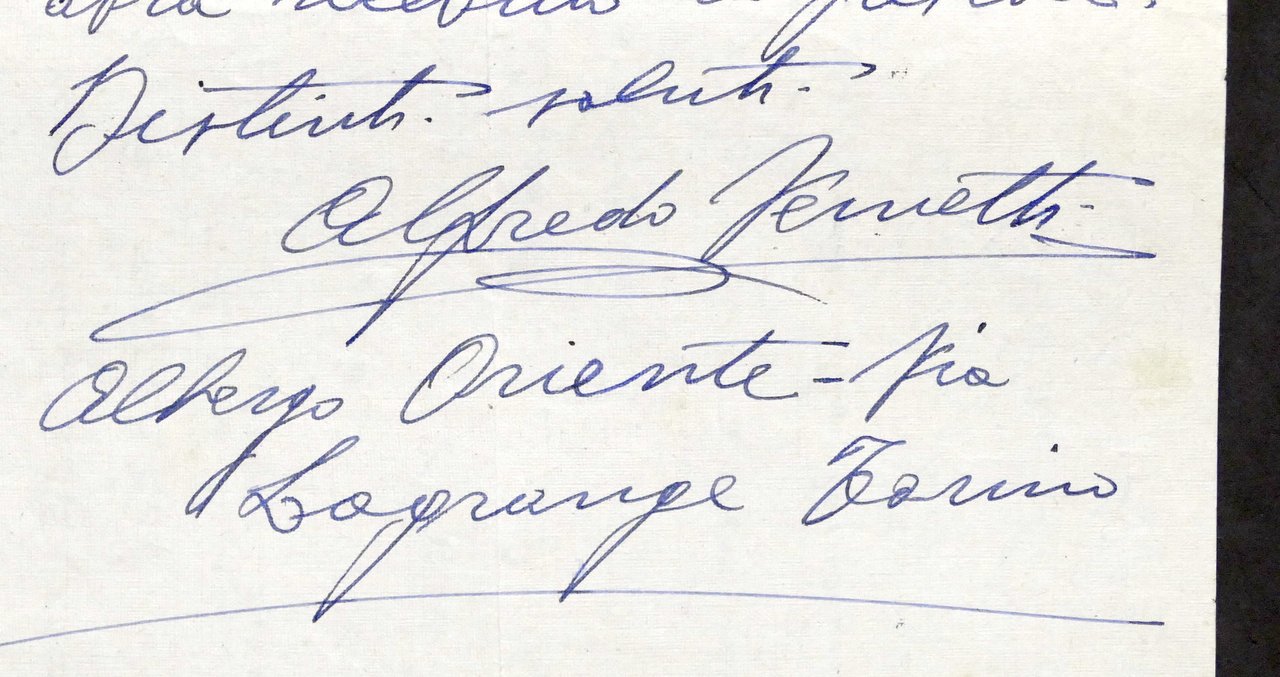 avrà
Distinti saluti.
Alfredo Vernetti
Albergo Oriente = Via
Lagrange Torino